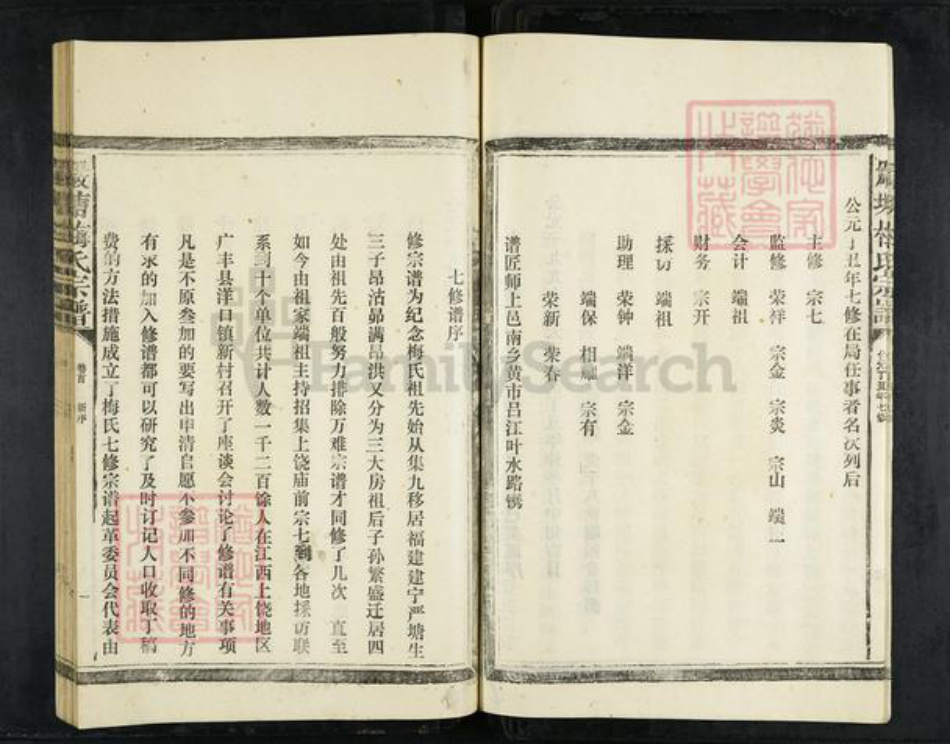 严塘梅氏宗谱
公元丁丑年七修在局任事者名次列后
主修 宗七
监修 荣祥 宗金 宗炎 宗山 端一
会计 端祖
财务 宗开
采访 端祖
助理 荣钟 端洋 宗金
端保 相顺 宗有
荣新 荣春
谱匠师上邑南乡黄市吕江叶水路镌
七修谱序
修宗谱为纪念梅氏祖先始从集九移居福建建宁严塘生
三子昂沽昂满昂洪又分为三大房祖后子孙繁盛迁居四
处由祖先百般努力排除万难宗谱才同修了几次 直至
如今由祖家端祖主持招集上饶庙前宗七到各地採访联
系到十个单位共计人数一千二百馀人在江西上饶地区
广丰县洋口镇新村召开了座谈会讨论了修谱有关事项
凡是不原叁加的要写出申清自愿不参加不同修的地方
有求的加入修谱都可以研究了及时订记人口收取丁稿
费的方法措施成立了梅氏七修宗谱起革委员会代表由
严塘梅氏宗谱
卷首 新序
一
FamilySearch